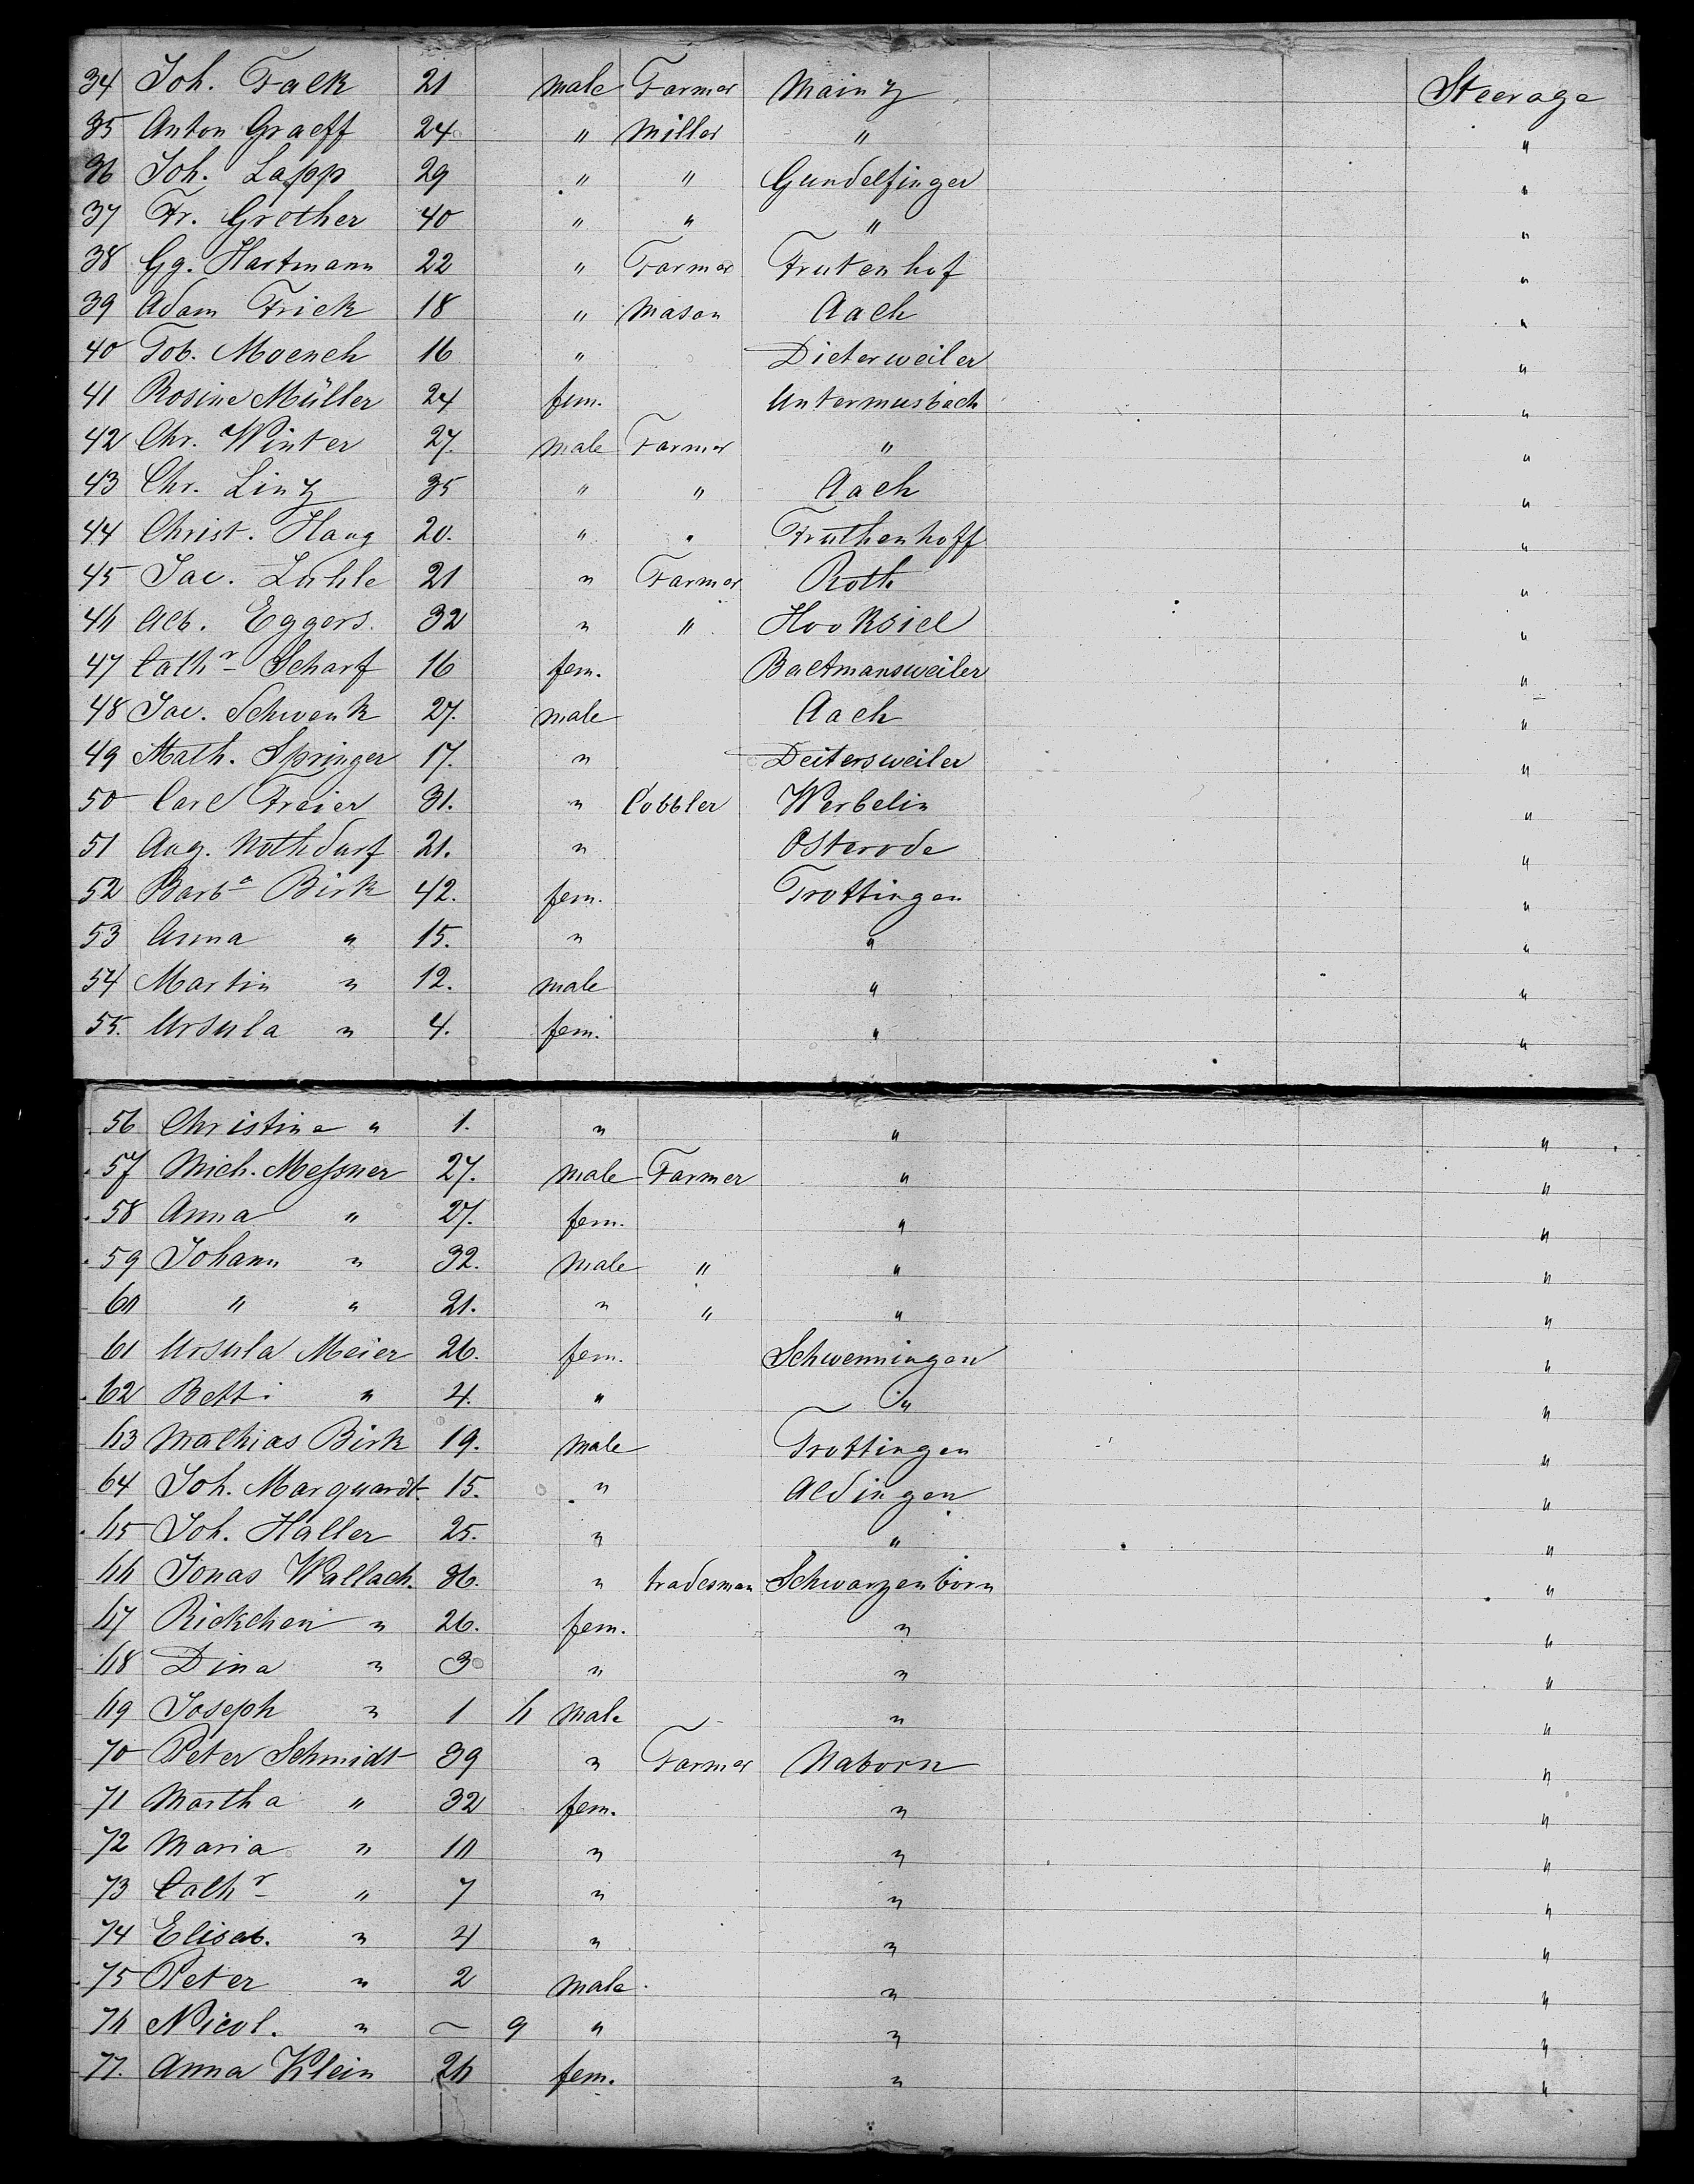 34 Joh. Falk 21 male Farmer Mainz Steerage
35 Anton Graeff 24 " Miller " "
36 Joh. Lapp 29 " " Gundelfinger "
37 Fr. Grother 40 " " " "
38 Gg. Hartmann 22 " Farmer Frutenhof "
39 Adam Frick 18 " Mason Aach "
40 Tob. Moench 16 " Dieterweiler "
41 Rosine Müller 24 fem. Untermusbach "
42 Chr. Winter 27. male Farmer " "
43 Chr. Linz 35 " " Aach "
44 Christ. Haug 20. " " Fruthenhoff "
45 Jac. Luhle 21 " Farmer Roth "
46 Alb. Eggers. 32 " " Hooksiel "
47 Cathr Scharf 16 fem. Baetmansweiler "
48 Jac. Schwenk 27. male Aach "
49 Math. Springer 17. " Deitersweiler "
50 Carl Freier 31. " Cobbler Werbelin "
51 Aug. Nothdurf 21. " Osterode "
52 Barba Birk 42. fem. Trottingen "
53 Anna " 15. " " "
54 Martin " 12. male " "
55. Ursula " 4. fem. " "
56 Christine " 1. " " "
57 Mich. Messner 27. male Farmer " "
58 Anna " 27. fem. " "
59 Johann " 32. male " " "
60 " " 21. " " " "
61 Ursula Meier 26. fem. Schwenningen "
62 Betti " 4. " " "
63 Mathias Birk 19. male Trottingen "
64 Joh. Marquardt 15. " Aldingen "
65 Joh. Haller 25. " " "
66 Jonas Wallach. 36. " tradesman Schwarzenborn "
67 Rickchen " 26. fem. " "
68 Dina " 3 " " "
69 Joseph " 1 6 male " "
70 Peter Schmidt 39 " Farmer Naborn "
71 Martha " 32 fem. " "
72 Maria " 10 " " "
73 Cathr " 7 " " "
74 Elisab. " 4 " " "
75 Peter " 2 male " "
76 Nicol. " ~ 9 " " "
77. Anna Klein 26 fem. " "